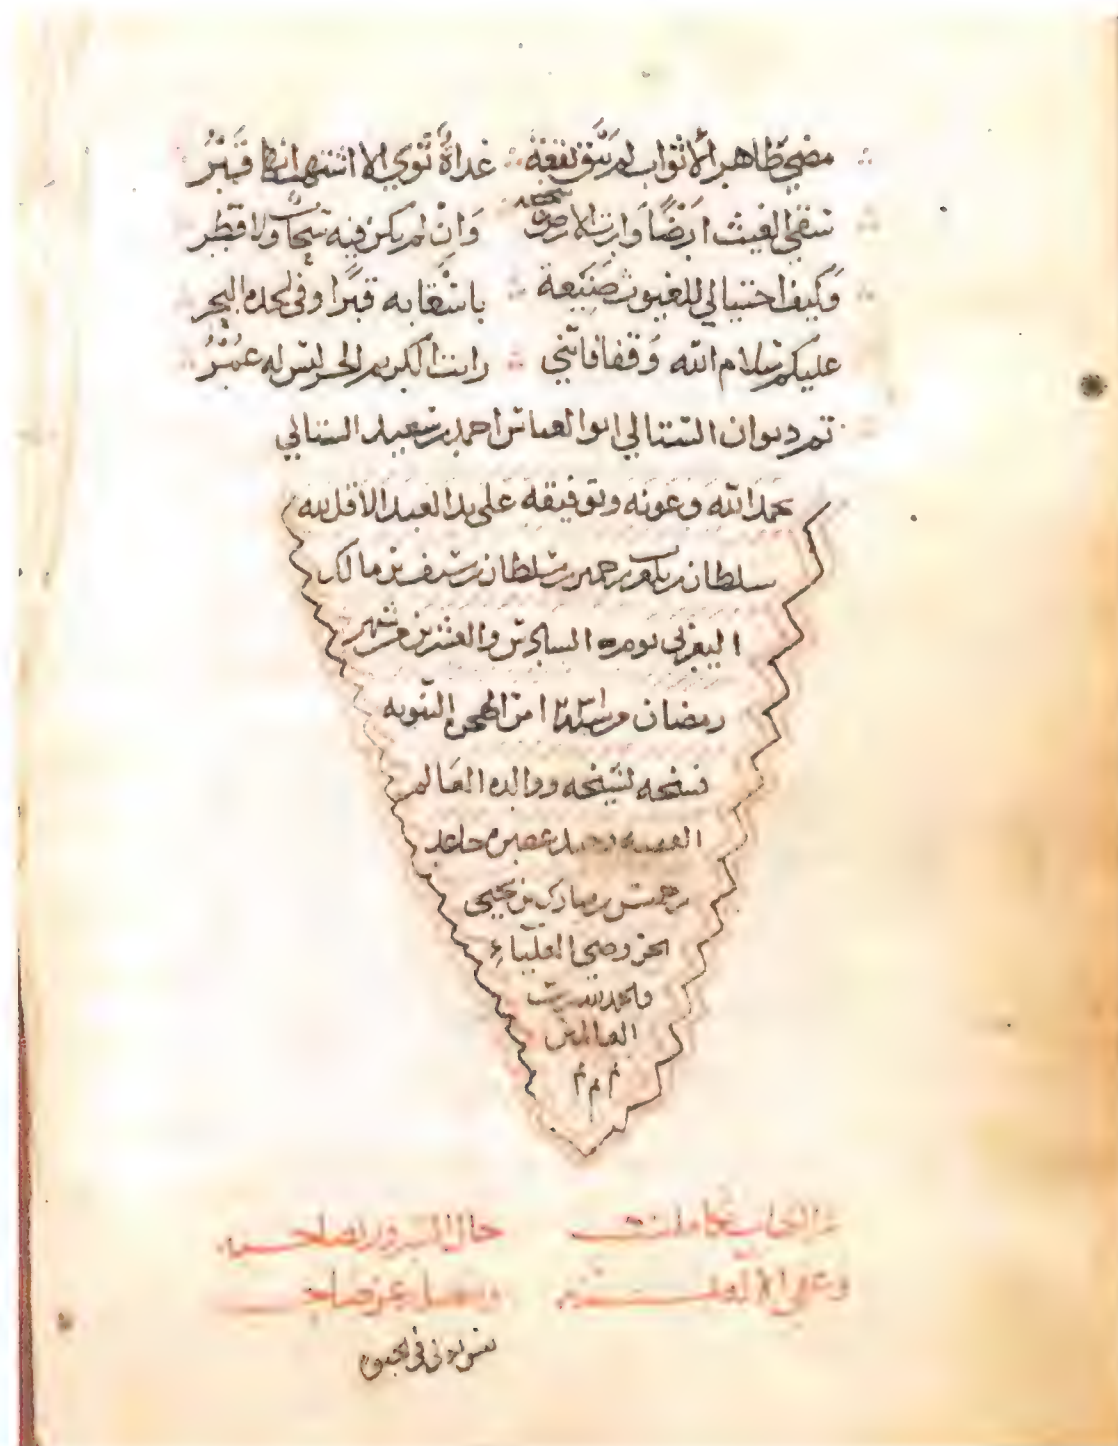 مضى طاهر الاثواب لم تبق بقعة ∴ غداة ثوى الا اشتهت انها قبر
سقى الغيث ارضًا وارت الارض شخصه وان لم يكن فيه سحاب ولا قطر
وكيف احتيالي للغيوث صنيعة ∴ باسقائه قبرًا وفي لحده البحر
عليكم سلام الله وقفا فانني ∴ رايت الكريم الحر ليس له عمر
تم ديوان الستالي ابو العباس احمد بن سعيد الستالي
بحمد الله وعونه وتوفيقه على يد العبد الاقل لله
سلطان بن بلعرب بن حمير بن سلطان بن سيف بن مالك
اليعربي يوم السادس والعشرين من شهر
رمضان من الهجرة النبويه
نسخه لشيخه ووالده العالم
الفقيه عصره جاعد
بن خميس بن مبارك بن يحيى
الخروصي العلياء
والحمد لله رب
العالمين
م م م
تم الكتاب تكاملت حال السرور لصاحبه
وعفى الاله عن صاحب